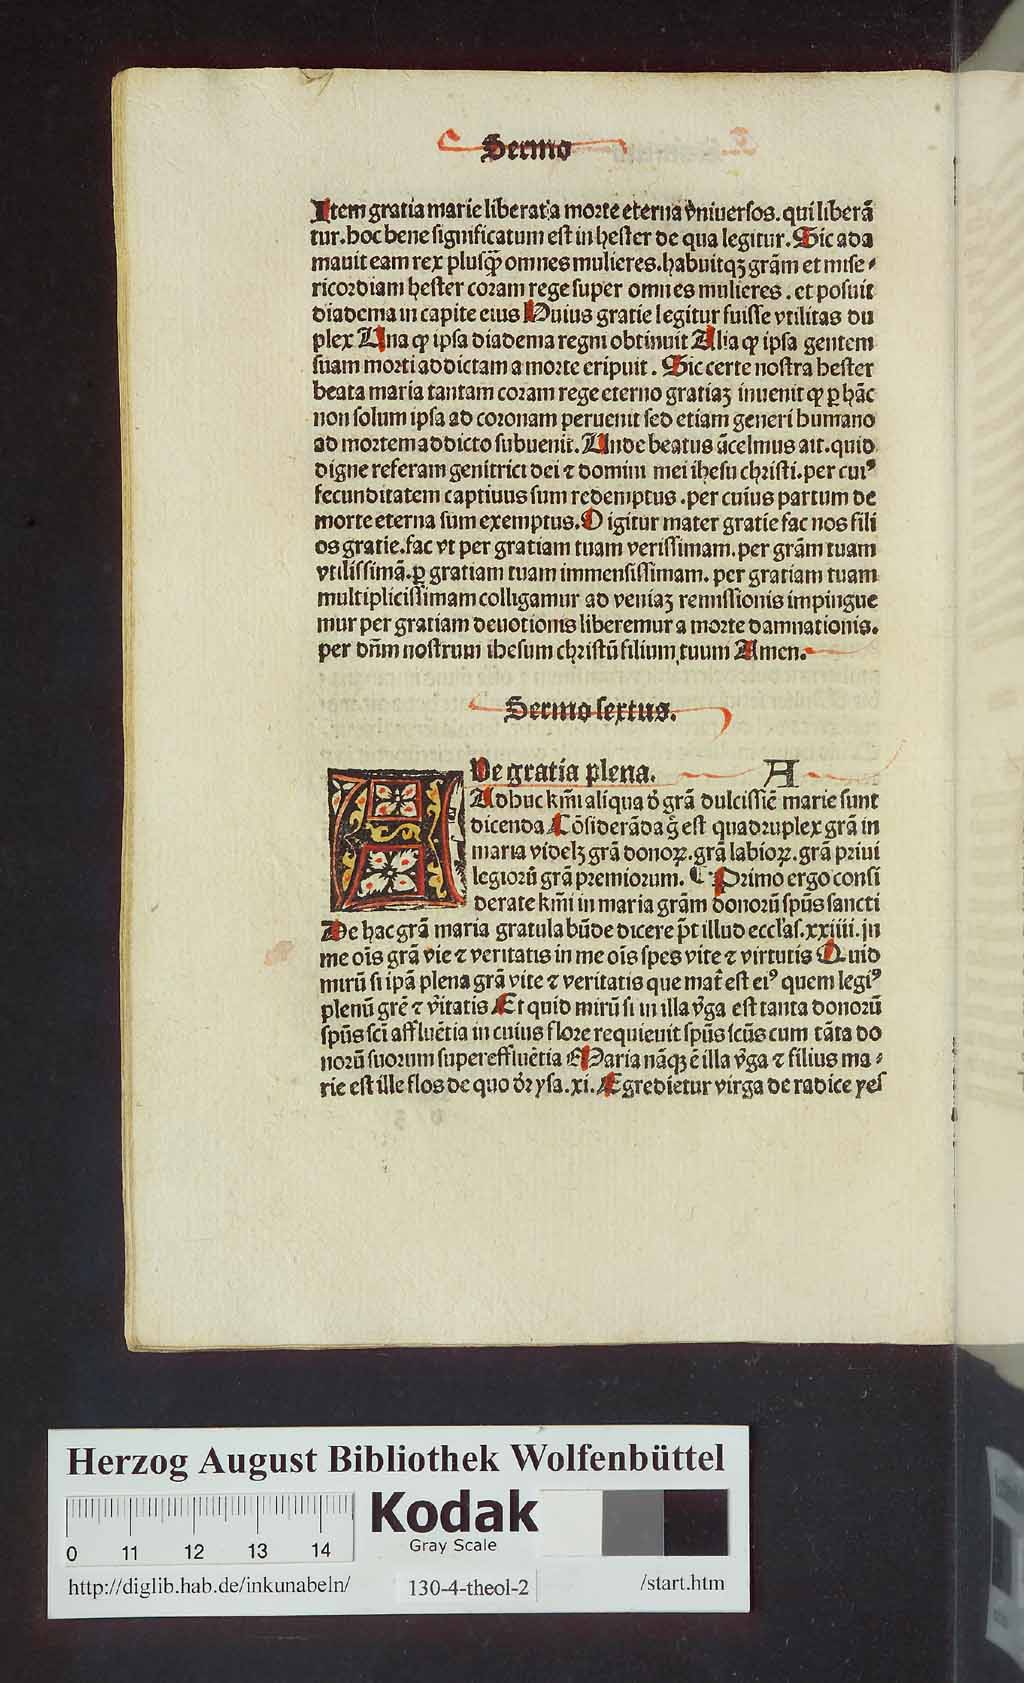 Sermo
Item gratia marie liberat a morte eterna vniuersos. qui liberã
tur. hoc bene significatum est in hester de qua legitur. Sic ada
mauit eam rex plusꝗ̃ omnes mulieres. habuitqȝ grãm et mise-
ricordiam hester coram rege super omnes mulieres. et posuit
diadema in capite eius Huius gratie legitur fuisse vtilitas du
plex Una ꝙ ipsa diadema regni obtinuit Alia ꝙ ipsa gentem
suam morti addictam a morte eripuit. Sic certe nostra hester
beata maria tantam coram rege eterno gratiaȝ inuenit ꝙ ꝑ hãc
non solum ipsa ad coronam peruenit sed etiam generi humano
ad mortem addicto subuenit. Unde beatus ãcelmus ait. quid
digne referam genitrici dei ⁊ domini mei ihesu christi. per cuiꝰ
fecunditatem captiuus sum redemptus. per cuius partum de
morte eterna sum exemptus. O igitur mater gratie fac nos fili
os gratie. fac vt per gratiam tuam verissimam. per grãm tuam
vtilissimã. ꝑ gratiam tuam immensissimam. per gratiam tuam
multiplicissimam colligamur ad veniaȝ remissionis impingue
mur per gratiam deuotionis liberemur a morte damnationis.
per dñm nostrum ihesum christũ filium tuum Amen.
Sermo sextus.
A
Ue gratia plena. A
Adhuc km̃i aliqua ð grã dulcissiẽ marie sunt
dicenda Cõsiderãda g̃ est quadruplex grã in
maria videlȝ grã donoꝝ. grã labioꝝ. grã priui
legiorũ grã premiorum. ¶ Primo ergo consi
derate km̃i in maria grãm donorũ spũs sancti
De hac grã maria gratulabũde dicere p̃t illud eccl'as. xxiiii. jn
me oĩs grã vie ⁊ veritatis in me oĩs spes vite ⁊ virtutis Quid
mirũ si ipã plena grã vite ⁊ veritatis que mat̃ est eiꝰ quem legiꝰ
plenũ grẽ ⁊ ṽitatis Et quid mirũ si in illa ṽga est tanta donorũ
spũs sc̃i affluẽtia in cuius flore requieuit spũs scũs cum tãta do
norũ suorum supereffluẽtia Maria nãqȝ ẽ illa ṽga ⁊ filius ma-
rie est ille flos de quo ðr ysa. xi. Egredietur virga de radice yes
Herzog August Bibliothek Wolfenbüttel
0 11 12 13 14
Kodak
Gray Scale
http://diglib.hab.de/inkunabeln/ 130-4-theol-2 /start.htm